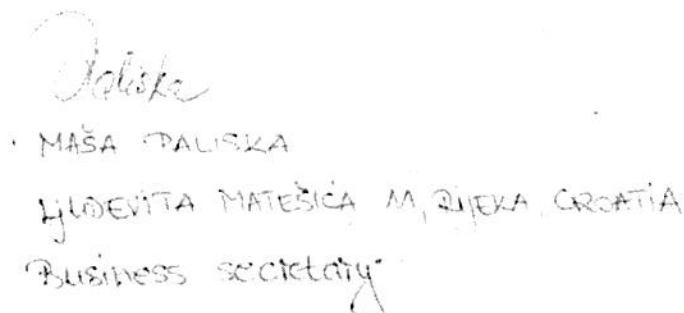 Paliska
MAŠA PALISKA
LJUDEVITA MATEŠIĆA 11, RIJEKA, CROATIA
Business secretary